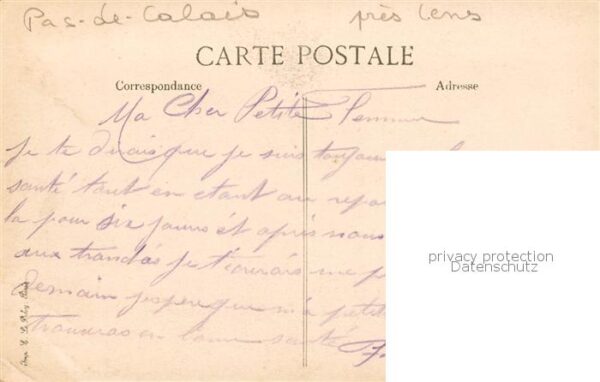 Pas-de-Calais près Lens
CARTE POSTALE
Correspondance Adresse
Ma Cher Petite Femme
Je te dirais que je suis toujours
santé tout en etant au repos
la pour six jours ét après nous
aux je t'écrirais
Demain j'espere que ma petite
en bonne santé
privacy protection
Datenschutz